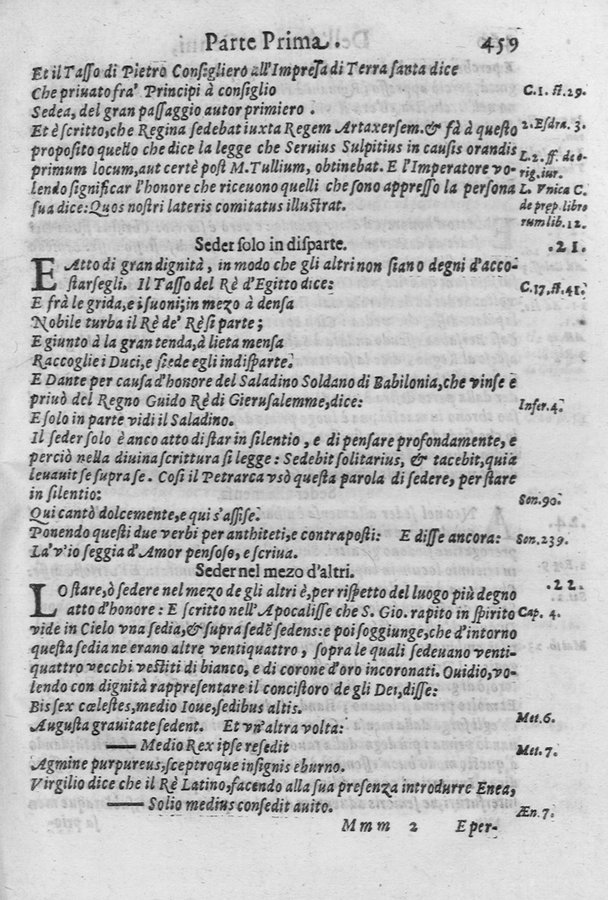 Parte Prima. 459
Et il Tasso di Pietro Consigliero all'Impresa di Terra santa dice
Che priuato fra' Principi à consiglio C.1. st.29.
Sedea, del gran passaggio autor primiero.
Et è scritto, che Regina sedebat iuxta Regem Artaxersem. & fà à questo 2. Esdra. 3.
proposito quello che dice la legge che Seruius Sulpitius in causis orandis
primum locum, aut certè post M. Tullium, obtinebat. E l'Imperatore vo- L. 2. ff. de o-
lendo significar l'honore che riceuono quelli che sono appresso la persona rig. iur. L. Vnica C.
sua dice: Quos nostri lateris comitatus illustrat. de prep. libro
rum lib. 12.
Seder solo in disparte. .21.
E Atto di gran dignità, in modo che gli altri non siano degni d'acco-
starsegli. Il Tasso del Rè d'Egitto dice: C. 17. st. 41.
E frà le grida, e i suoni; in mezo à densa
Nobile turba il Rè de' Rè si parte;
E giunto à la gran tenda, à lieta mensa
Raccoglie i Duci, e siede egli indisparte.
E Dante per causa d'honore del Saladino Soldano di Babilonia, che vinse e
priuò del Regno Guido Rè di Gierusalemme, dice: Infer. 4.
E solo in parte vidi il Saladino.
Il seder solo è anco atto di star in silentio, e di pensare profondamente, e
perciò nella diuina scrittura si legge: Sedebit solitarius, & tacebit, quia
leuauit se supra se. Così il Petrarca vsò questa parola di sedere, per stare
in silentio: Son. 90.
Qui cantò dolcemente, e qui s'assise.
Ponendo questi due verbi per anthiteti, e contraposti: E disse ancora: Son. 239.
La'v'io seggia d'Amor pensoso, e scriua.
Seder nel mezo d'altri. .22.
LO stare, ò sedere nel mezo de gli altri è, per rispetto del luogo più degno
atto d'honore: E scritto nell'Apocalisse che S. Gio. rapito in spirito Cap. 4.
vide in Cielo vna sedia, & supra sedē sedens: e poi soggiunge, che d'intorno
questa sedia ne erano altre ventiquattro, sopra le quali sedeuano venti-
quattro vecchi vestiti di bianco, e di corone d'oro incoronati. Ouidio, vo-
lendo con dignità rappresentare il concistoro de gli Dei, disse:
Bis sex cœlestes, medio Ioue, sedibus altis.
Augusta grauitate sedent. Et vn'altra volta: Met. 6.
— Medio Rex ipse resedit Met. 7.
Agmine purpureus, sceptroque insignis eburno.
Virgilio dice che il Rè Latino, facendo alla sua presenza introdurre Enea,
— Solio medius consedit auito. Æn. 7.
Mmm 2 E per-